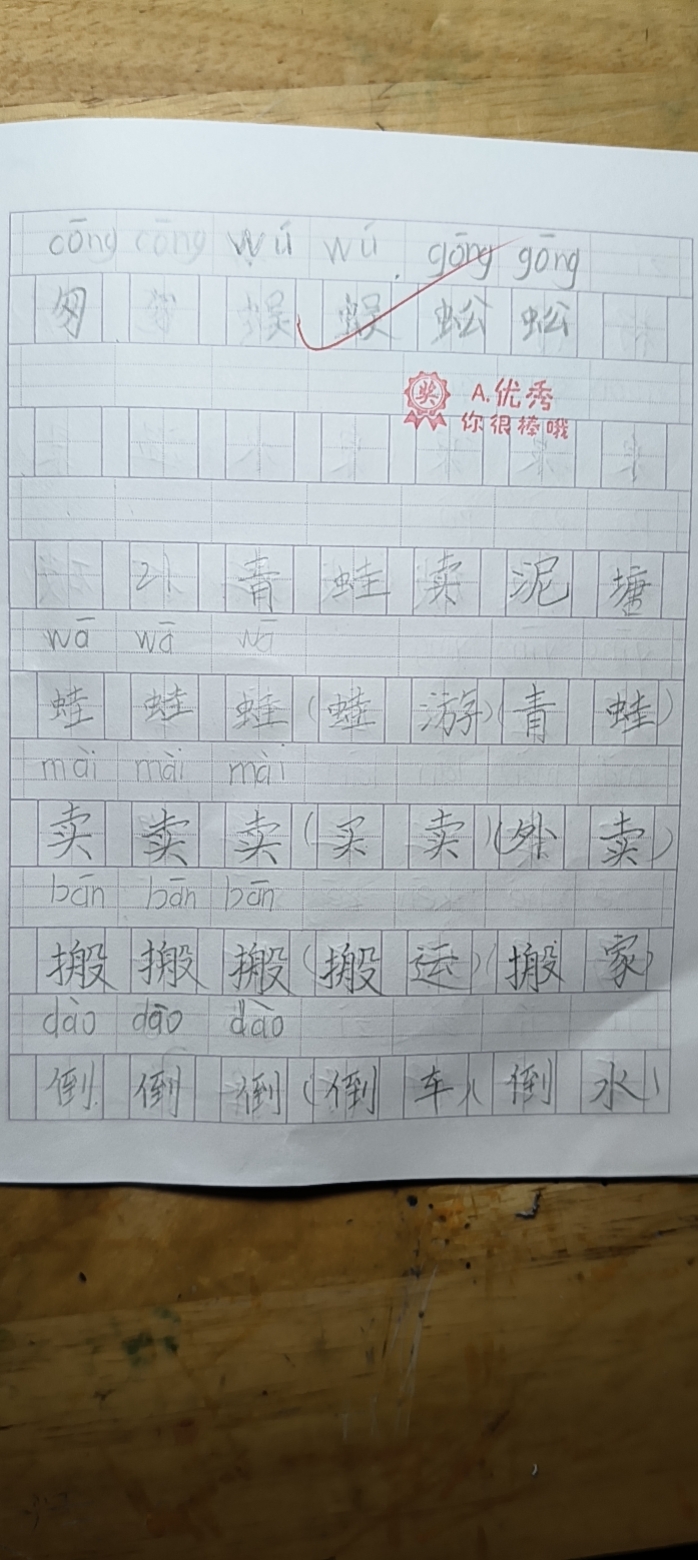 cōng cōng wú wú gōng gōng
匆 匆 蜈 蜈 蚣 蚣
奖 A.优秀
你很棒哦
21 青 蛙 卖 泥 塘
wā wā wā
蛙 蛙 蛙 (蛙 游) (青 蛙)
mài mài mài
卖 卖 卖 (买 卖) (外 卖)
bān bān bān
搬 搬 搬 (搬 运) (搬 家)
dào dǎo dào
倒 倒 倒 (倒 车) (倒 水)